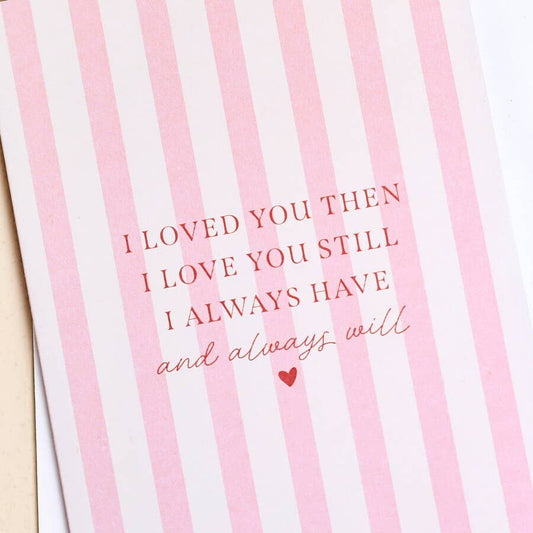 I LOVED YOU THEN
I LOVE YOU STILL
I ALWAYS HAVE
and always will